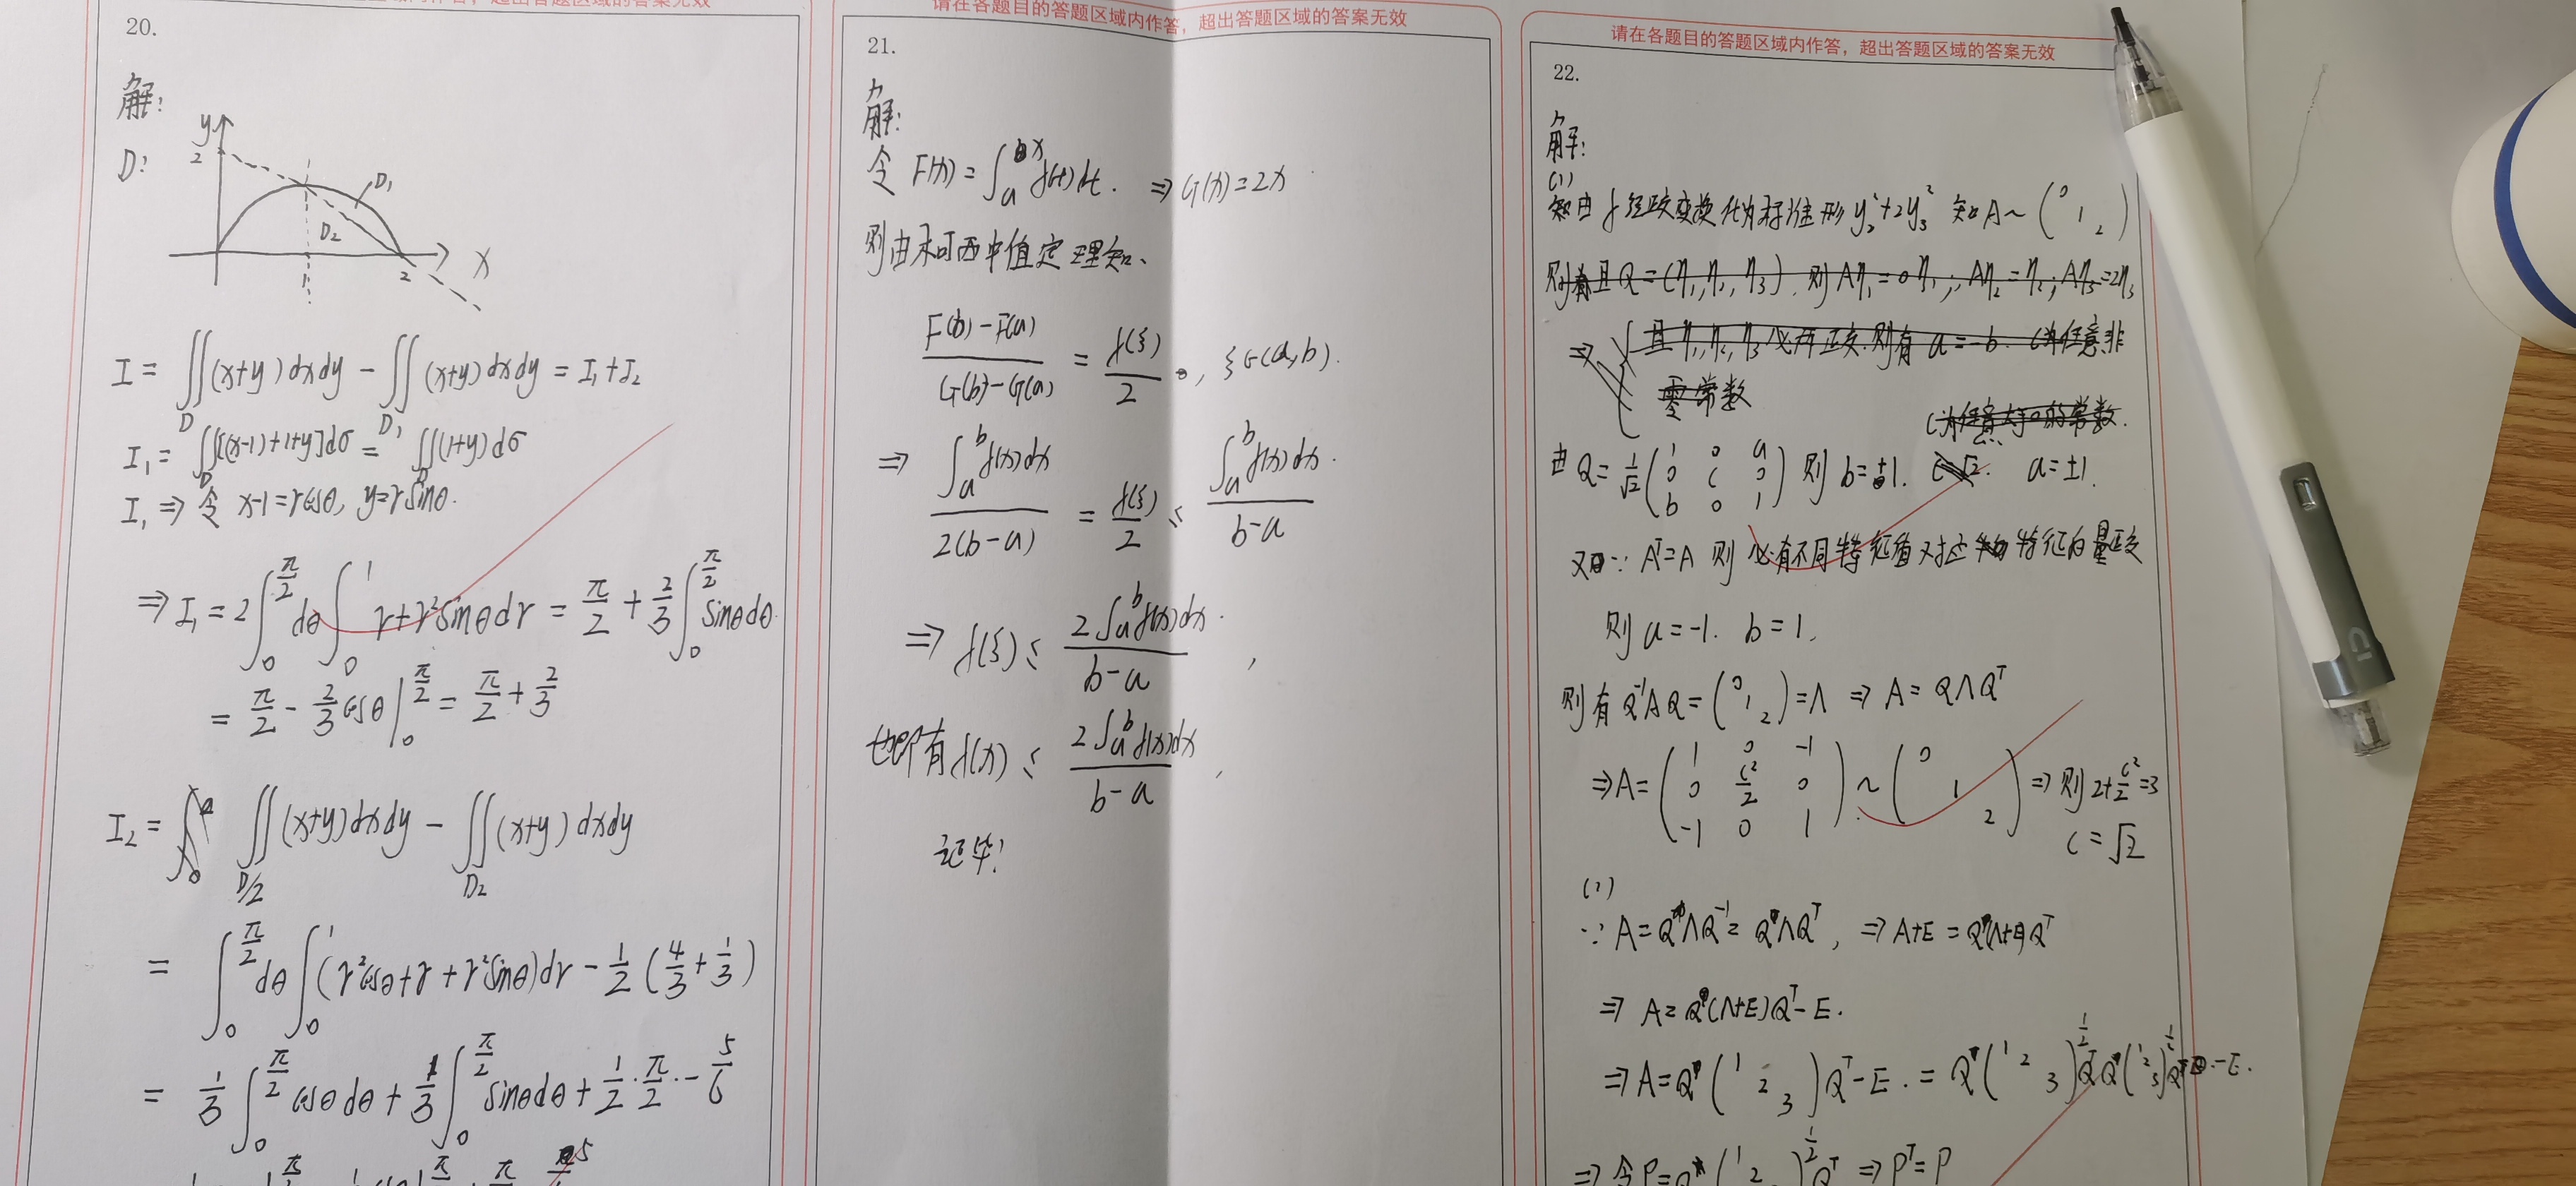 超出答题区域的答案无效
20.
解:
D:
y
2
D₁
D₂
1
2
x
I = ∬_D (x+y)dxdy - ∬_{D₁} (x+y)dxdy = I₁+I₂
I₁ = ∬_D [(x-1)+1+y]dσ = ∬_D (1+y)dσ
I₁ ⇒ 令 x-1=rcosθ, y=rsinθ.
⇒ I₁ = 2∫₀^{π/2} dθ ∫₀^1 r+r²sinθ dr = π/2 + 2/3 ∫₀^{π/2} sinθdθ
= π/2 - 2/3 cosθ |₀^{π/2} = π/2 + 2/3
I₂ = ∬_{D/2} (x+y)dxdy - ∬_{D₂} (x+y)dxdy
= ∫₀^{π/2} dθ ∫₀^1 (r²cosθ+r+r²sinθ)dr - 1/2 (4/3 + 1/3)
= 1/3 ∫₀^{π/2} cosθdθ + 1/3 ∫₀^{π/2} sinθdθ + 1/2·π/2 - 5/6
请在各题目的答题区域内作答，超出答题区域的答案无效
21.
解:
令 F(x) = ∫ₐ^x f(t)dt. ⇒ G(x)=2x
则由柯西中值定理知、
(F(b)-F(a))/(G(b)-G(a)) = f(ξ)/2, ξ∈(a,b).
⇒ ∫ₐ^b f(x)dx / 2(b-a) = f(ξ)/2 ≤ ∫ₐ^b f(x)dx / b-a
⇒ f(ξ) ≤ 2∫ₐ^b f(x)dx / b-a ,
也即有 f(x) ≤ 2∫ₐ^b f(x)dx / b-a ,
证毕!
请在各题目的答题区域内作答，超出答题区域的答案无效
22.
解:
(1)
由 f 经正交变换化为标准形 y₂²+2y₃² 知 A ~ (0 1 2)
则且 Q=(η₁,η₂,η₃). 则 Aη₁=0η₁; Aη₂=η₂; Aη₃=2η₃
⇒ { 且 η₁,η₂,η₃ 必正交. 则有 a=-b. c为任意非
零常数
c为任意大于0的常数.
由 Q = 1/√2 (1 0 a; 0 c 0; b 0 1) 则 b=±1. c=√2. a=±1.
又∵ Aᵀ=A 则必有不同特征值对应的特征向量正交
则 a=-1. b=1.
则有 Q⁻¹AQ = (0 1 2) = Λ ⇒ A = QΛQᵀ
⇒ A = (1 0 -1; 0 c²/2 0; -1 0 1) ~ (0 1 2) ⇒ 则 2+c²/2=3
c=√2
(2)
∵ A = QΛQ⁻¹ = QΛQᵀ, ⇒ A+E = Q(Λ+E)Qᵀ
⇒ A = Q(Λ+E)Qᵀ - E.
⇒ A = Q(1 2 3)Qᵀ - E. = Q(1 2 3)^{1/2} QᵀQ(1 2 3)^{1/2} Qᵀ - E.